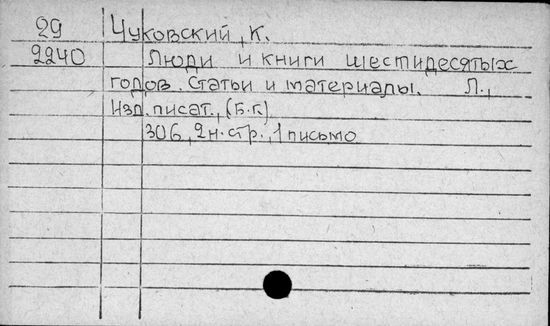 29 Чуковский, К.
2240 Люди и книги шестидесятых
годов. Статьи и материалы. Л.,
Изд. писат., (Б.г.)
306, 2 н. стр., 1 письмо